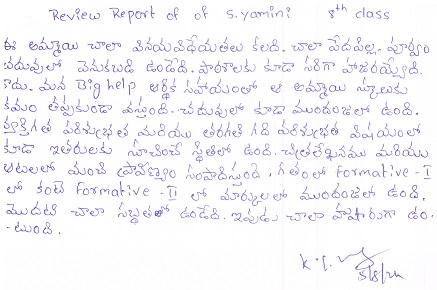 Review Report of of S.yamini 8th class
ఈ అమ్మాయి చాలా వినయవిధేయతలు కలది. చాలా పేదపిల్ల. పూర్వం
చదువులో వెనుకబడి ఉండేది. పాఠశాలకు కూడా సరిగా హాజరయ్యేది
కాదు. మన Big help ఆర్థిక సహాయంతో ఆ అమ్మాయి స్కూలుకు
క్రమం తప్పకుండా వస్తుంది. చదువులో కూడా ముందంజలో ఉంది.
వ్యక్తిగత పరిశుభ్రత మరియు తరగతి గది పరిశుభ్రత విషయంలో
కూడా ఇతరులకు సూచించే స్థితిలో ఉంది. చిత్రలేఖనము మరియు
ఆటలలో మంచి ప్రావీణ్యం సంపాదిస్తుంది. గతంలో Formative - I
లో కంటె Formative - II లో మార్కులలో ముందంజలో ఉంది.
మొదట చాలా సబ్దతలో ఉండేది. ఇపుడు చాలా హుషారుగా ఉం-
-టుంది.